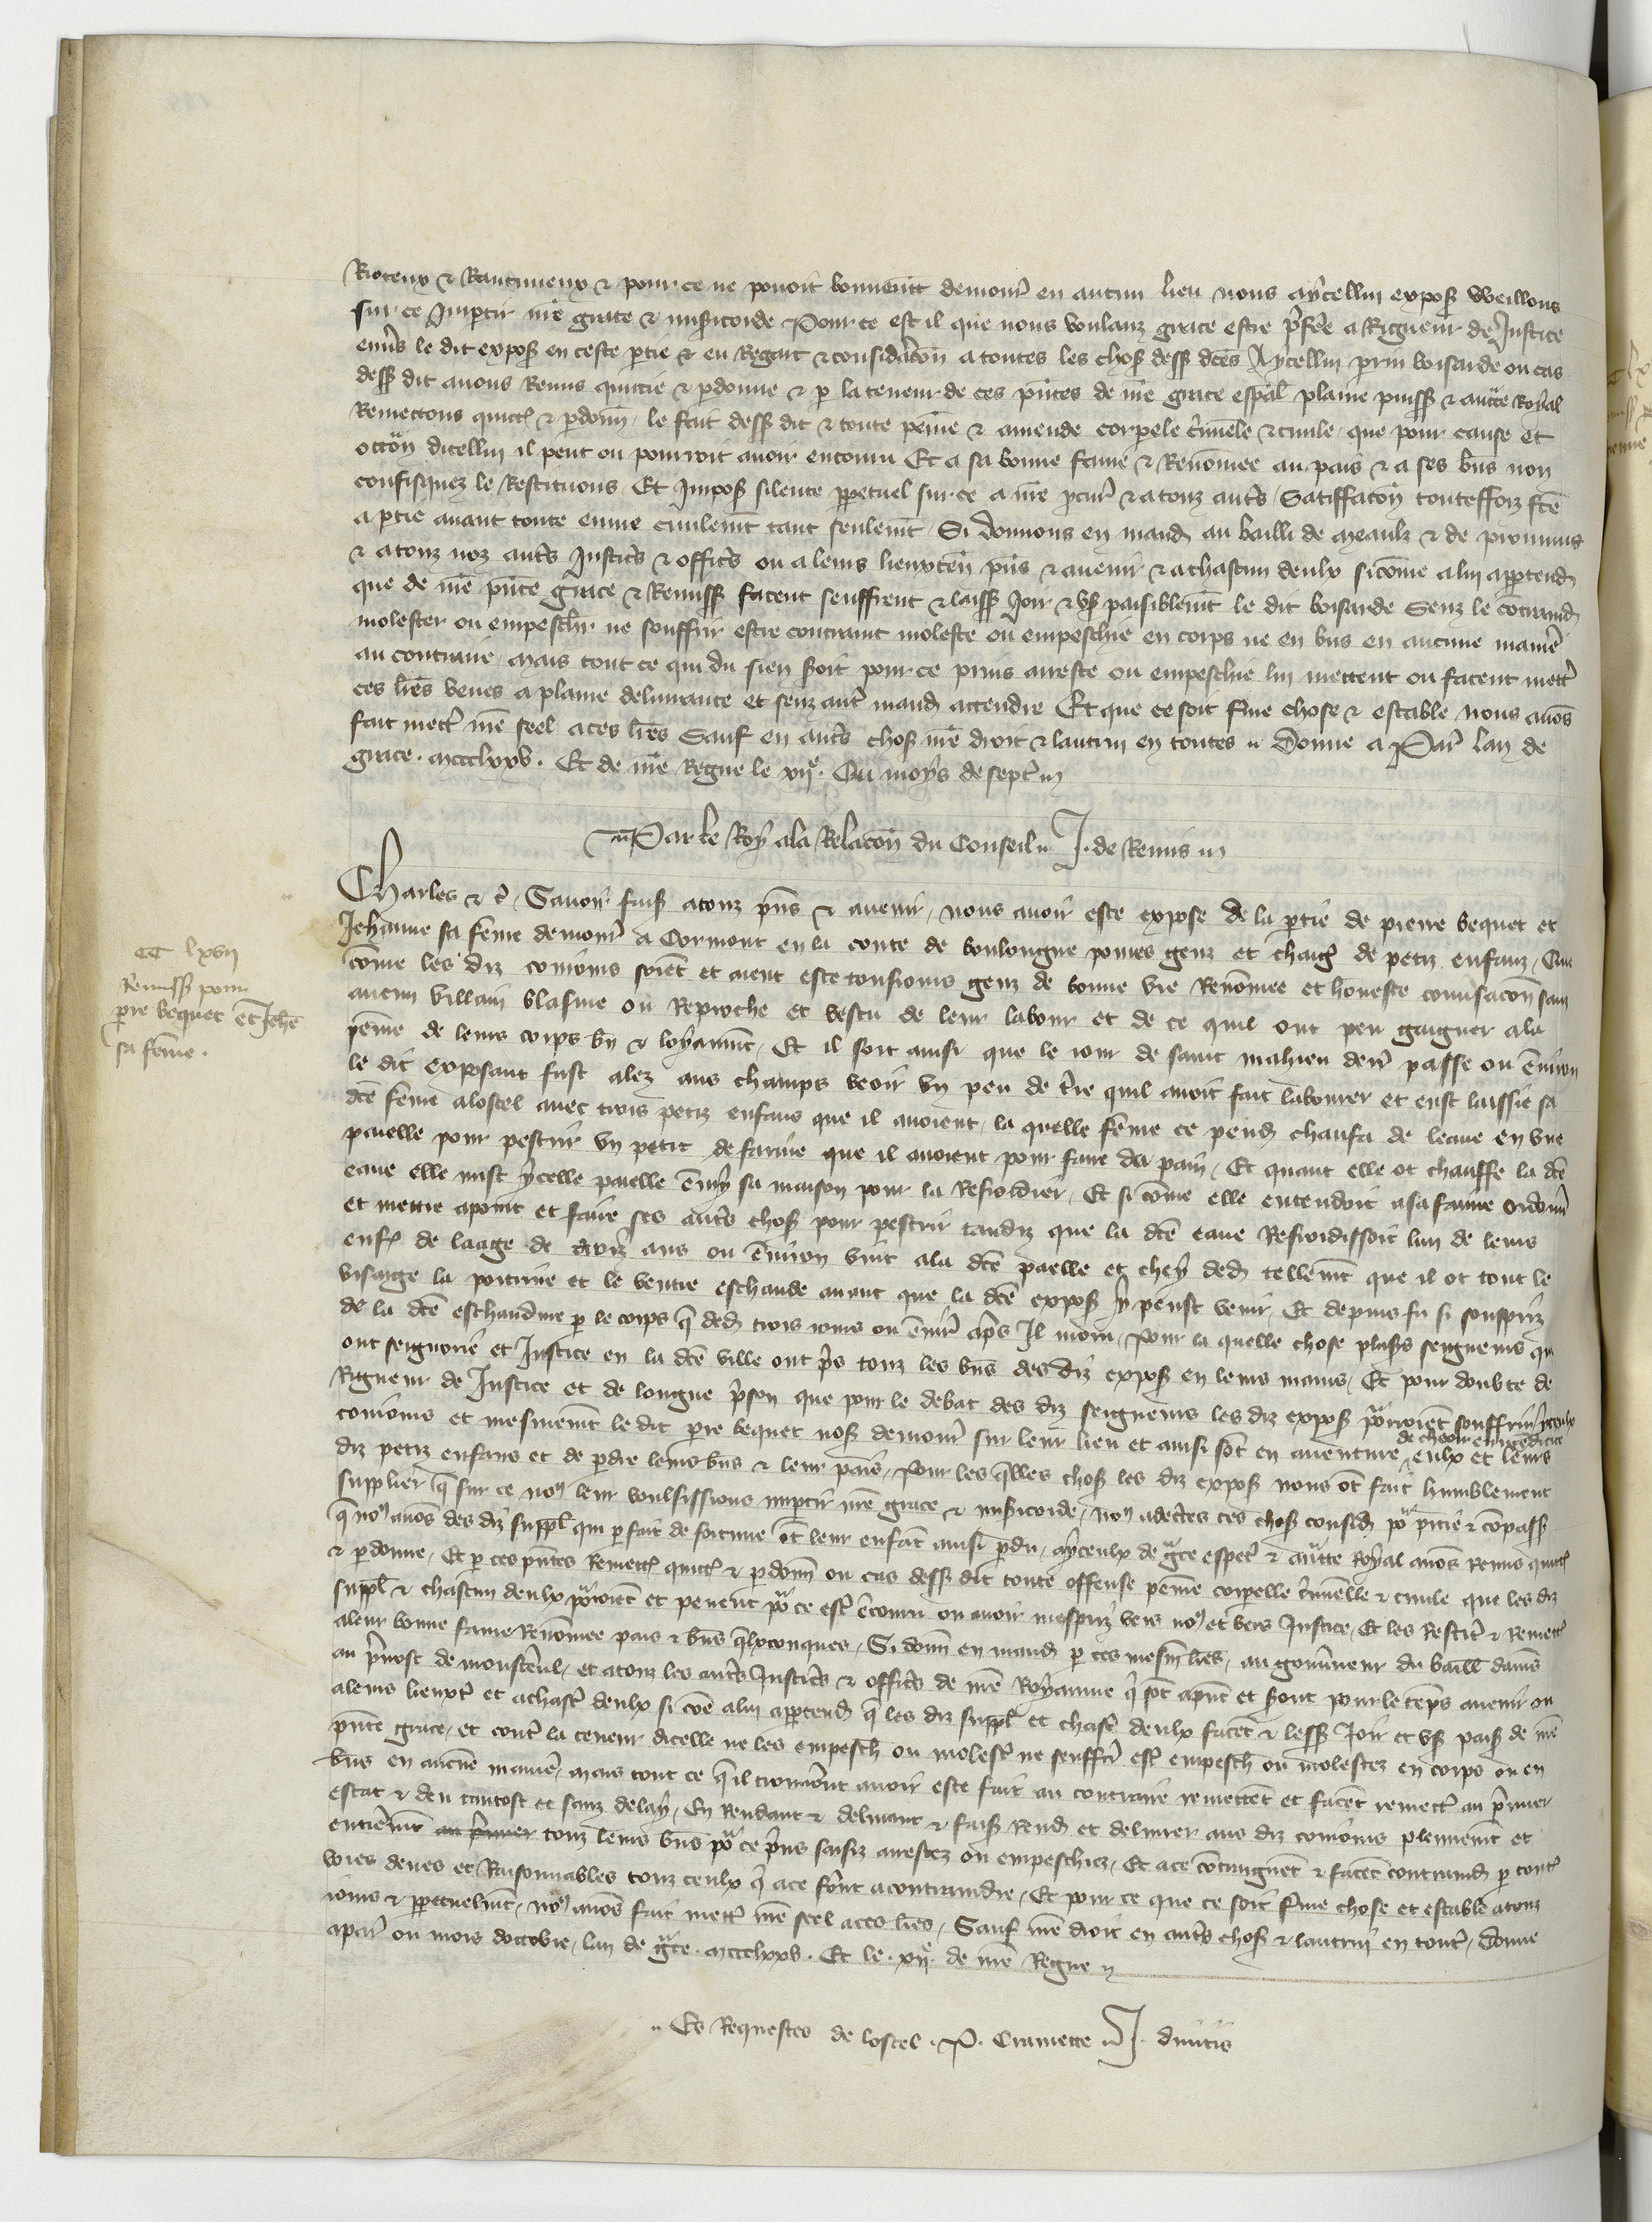 Rioteux & Rancuneux & pour ce ne pouoit bonnemt demourer en aucun lieu nous aycellui expos vueillons
sur ce Impartir nre grace & misericorde Pour ce est il que nous voulanz grace estre pferee a Rigueur de Justice
enuers le dit expos en ceste ptie & eu Regart & consideracon a toutes les chos dess dces Aycellui prin boisarde ou cas
dess dit auons Remis quictie & pdonne & p la teneur de ces pntes de nre grace espal plaine puiss & aucte Royal
Remettons quict & pdonn le fait dess dit & toute peine & amende corpele cminele & ciuile que pour cause et
occon dicellui il peut ou pourroit auoir encouru Et a sa bonne fame & Renommee au pais & a ses bns non
confisquez le Restituons Et Impos silence ppetuel sur ce a nre pcur & a touz autres Satiffacon touteffoiz fce
a ptie auant toute euure ciuilemt tant seulemt Si donnons en mand au bailli de Meaulx & de prouuins
& a touz noz autrs Justicrs & officrs ou a leurs lieuxten pns & auenir & a chascun deulx sicome a lui appartend
que de nre pnte grace & Remiss facent seuffrent & laiss Joir & vs paisiblemt le dit boisarde Senz le contraind
molester ou empeschr ne souffrir estre contraint moleste ou empeschie en corps ne en bns en aucune maniere
au contraire mais tout ce qui du sien seroit pour ce prins arreste ou empeschie lui mettent ou facent mettr
ces lres veues a plaine deliurance et senz autr mand attendre Et que ce soit ferme chose & estable nous auos
fait mettr nre seel a ces lres Sauf en autrs chos nre droit & lautrui en toutes Donne a Paris lan de
grace mccclxxv. Et de nre Regne le xije. Ou moys de septr
Par le Roy a la Relacon du Conseil J. de Remis
Charles & c Sauoir fais a touz pns & auenir nous auoir este expose de la ptie de pierre bequet et
Jehanne sa feme demour a Cormont en la conte de boulongne poures genz et charg de petiz enfanz Que
come les diz conioins soiet et aient este tousiours genz de bonne vie Renomee et honeste conuersacon sanz
aucun villain blasme ou Reprouche et vescu de leur labour et de ce quil ont peu gaigner a la
peine de leurs corps bn & loyaumt Et il soit ainsi que le iour de saint mahieu derr passe ou enuiron
le dit exposant fust alez aus champs veoir vn peu de tre quil auoit fait labourer et eust laissie sa
dce feme a lostel auec trois petiz enfans que il auoient la quelle feme ce pend chaufa de leaue en vne
paielle pour pestrir vn petit de farine que il auoient pour faire du pain Et quant elle ot chauffe la dce
eaue elle mist ycelle paielle emy sa maison pour la Refroidier Et si come elle entendoit a sa farine ordonn
et mettre apoint et faire ses autrs chos pour pestrir tandiz que la dce eaue Refroidissoit lun de leurs
enf de laage de troiz ans ou enuiron vint a la dce paelle et chey ded tellemt que il ot tout le
visaige la poitrine et le ventre eschaude auant que la dce expos y peust venir Et depuis fu si souspriz
de la dce eschaudure p le corps q ded trois iours ou enuir aps Il mour Pour la quelle chose plusrs seigneurs qui
ont seignorie et Justice en la dce ville ont prs touz les bns des diz expos en leurs mains Et pour doubte de
Rigueur de Justice et de longue prison que pour le debat des diz seigneurs les diz expos pourroiet souffrir yceulx
conioins et mesmemt le dit pre bequet nos demour sur leur lieu et ainsi sot en auenture de cheoir en mendicite eulx et leurs
diz petiz enfans et de pdre leurs bns & leur pais Pour les qlles chos les diz expos nous ot fait humblement
supplier q sur ce nos leur voulsissions impartir nre grace & misericorde nos adectes ces chos consid pour pitie & compass
q nos auos des diz suppl qui p fait de fortune ot leur enfat ainsi pdu ayceulx de grace espec & aucte Royal auos Remis quict
& pdonne Et p ces pntes Remett quict & pdonn ou cas dess dit toute offense peine corpelle cminelle & ciuile que les diz
suppl & chascun deulx pourroiet et peuent pour ce estr encouru ou auoir mespriz vers nos et vers Justice Et les Restitr & Remett
a leur bonne fame Renomee pais & bns qlxconques Si donn en mand p ces mesm lres au gouuerneur du baill damis
au preuost de monsteruel et a touz les autrs Justicrs & officrs de nre Royaume q sot apnt et seront pour le teps auenir ou
a leurs lieuxtn et a chasc deulx si coe a lui appartend q les diz suppl et chasc deulx facet & less Joir et vs pais de nre
pnte grace et contr la teneur dicelle ne les empesch ou molest ne seuffr estr empesch ou molestez en corps ou en
bns en aucune maniere mais tout ce q il trouueront auoir este fait au contraire remettet et facet remettr au pmier
estat & deu tantost et sanz delay En Rendant & deliurant & fais rend et deliurer aus diz conioins plenemt et
entieremt au pmier touz leurs bns pour ce prns saisiz arrestez ou empeschiez Et a ce contraignet & facet contraind p tout
voies deues et Raisonnables touz ceulx q a ce feront a contraindre Et pour ce que ce soit ferme chose et estable a touz
iours & ppetuelmt nos auos fait mettr nre seel a ces lres Sauf nre droit en autrs chos & lautrui en tout Donne
a paris ou mois doctobre lan de grace mccclxxv. Et le xije de nre Regne
Es Requestes de lostel. P. Cramette J. diuitis
CC lxvij
Remiss pour
pre bequet et Jehe
sa feme.